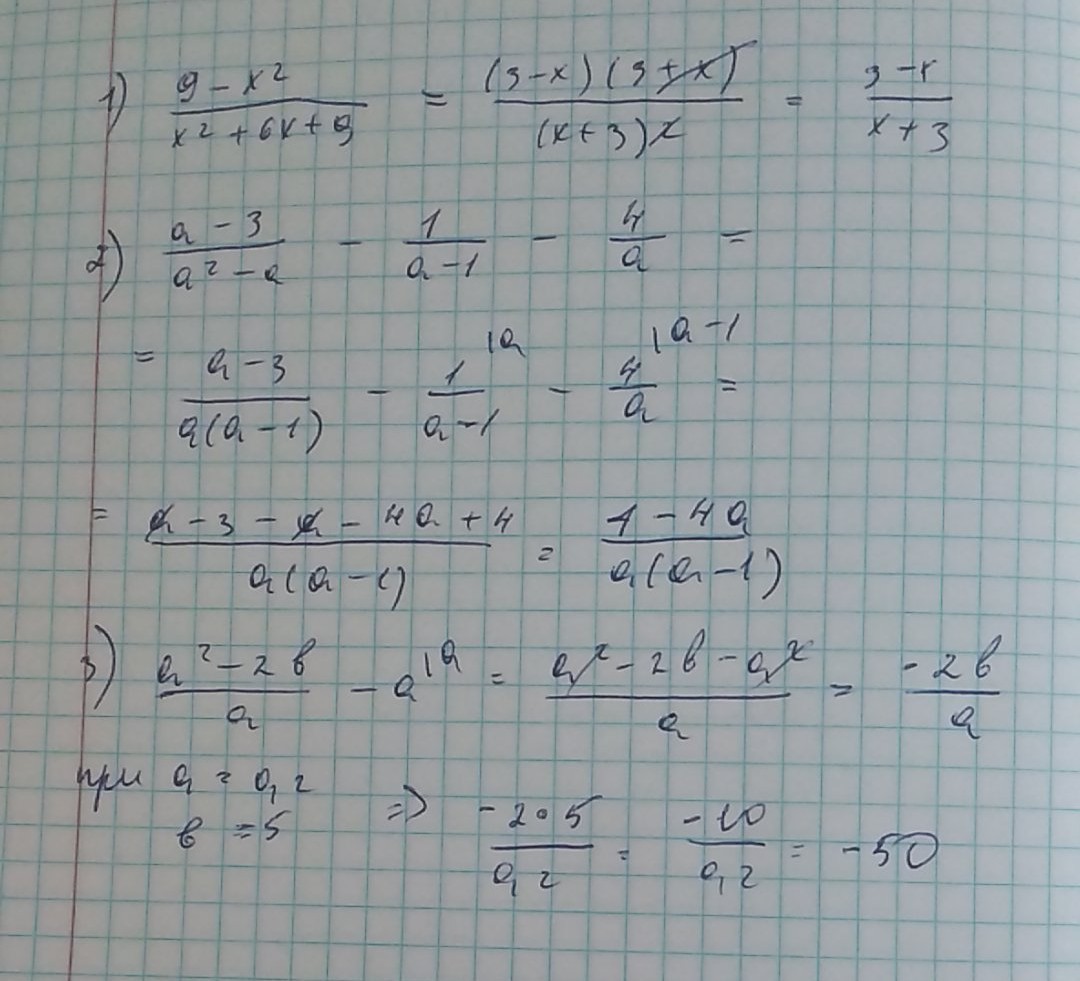 1) (9 - x²)/(x² + 6x + 9) = ((3 - x)(3 + x))/((x + 3)²) = (3 - x)/(x + 3)
2) (a - 3)/(a² - a) - 1/(a - 1) - 4/a =
= (a - 3)/(a(a - 1)) - 1/(a - 1) |a - 4/a |a - 1 =
= (a - 3 - a - 4a + 4)/(a(a - 1)) = (1 - 4a)/(a(a - 1))
3) (a² - 2в)/a - a |a = (a² - 2в - a²)/a = (-2в)/a
при a = 0,2
в = 5 => (-2·5)/(0,2) = (-10)/(0,2) = -50